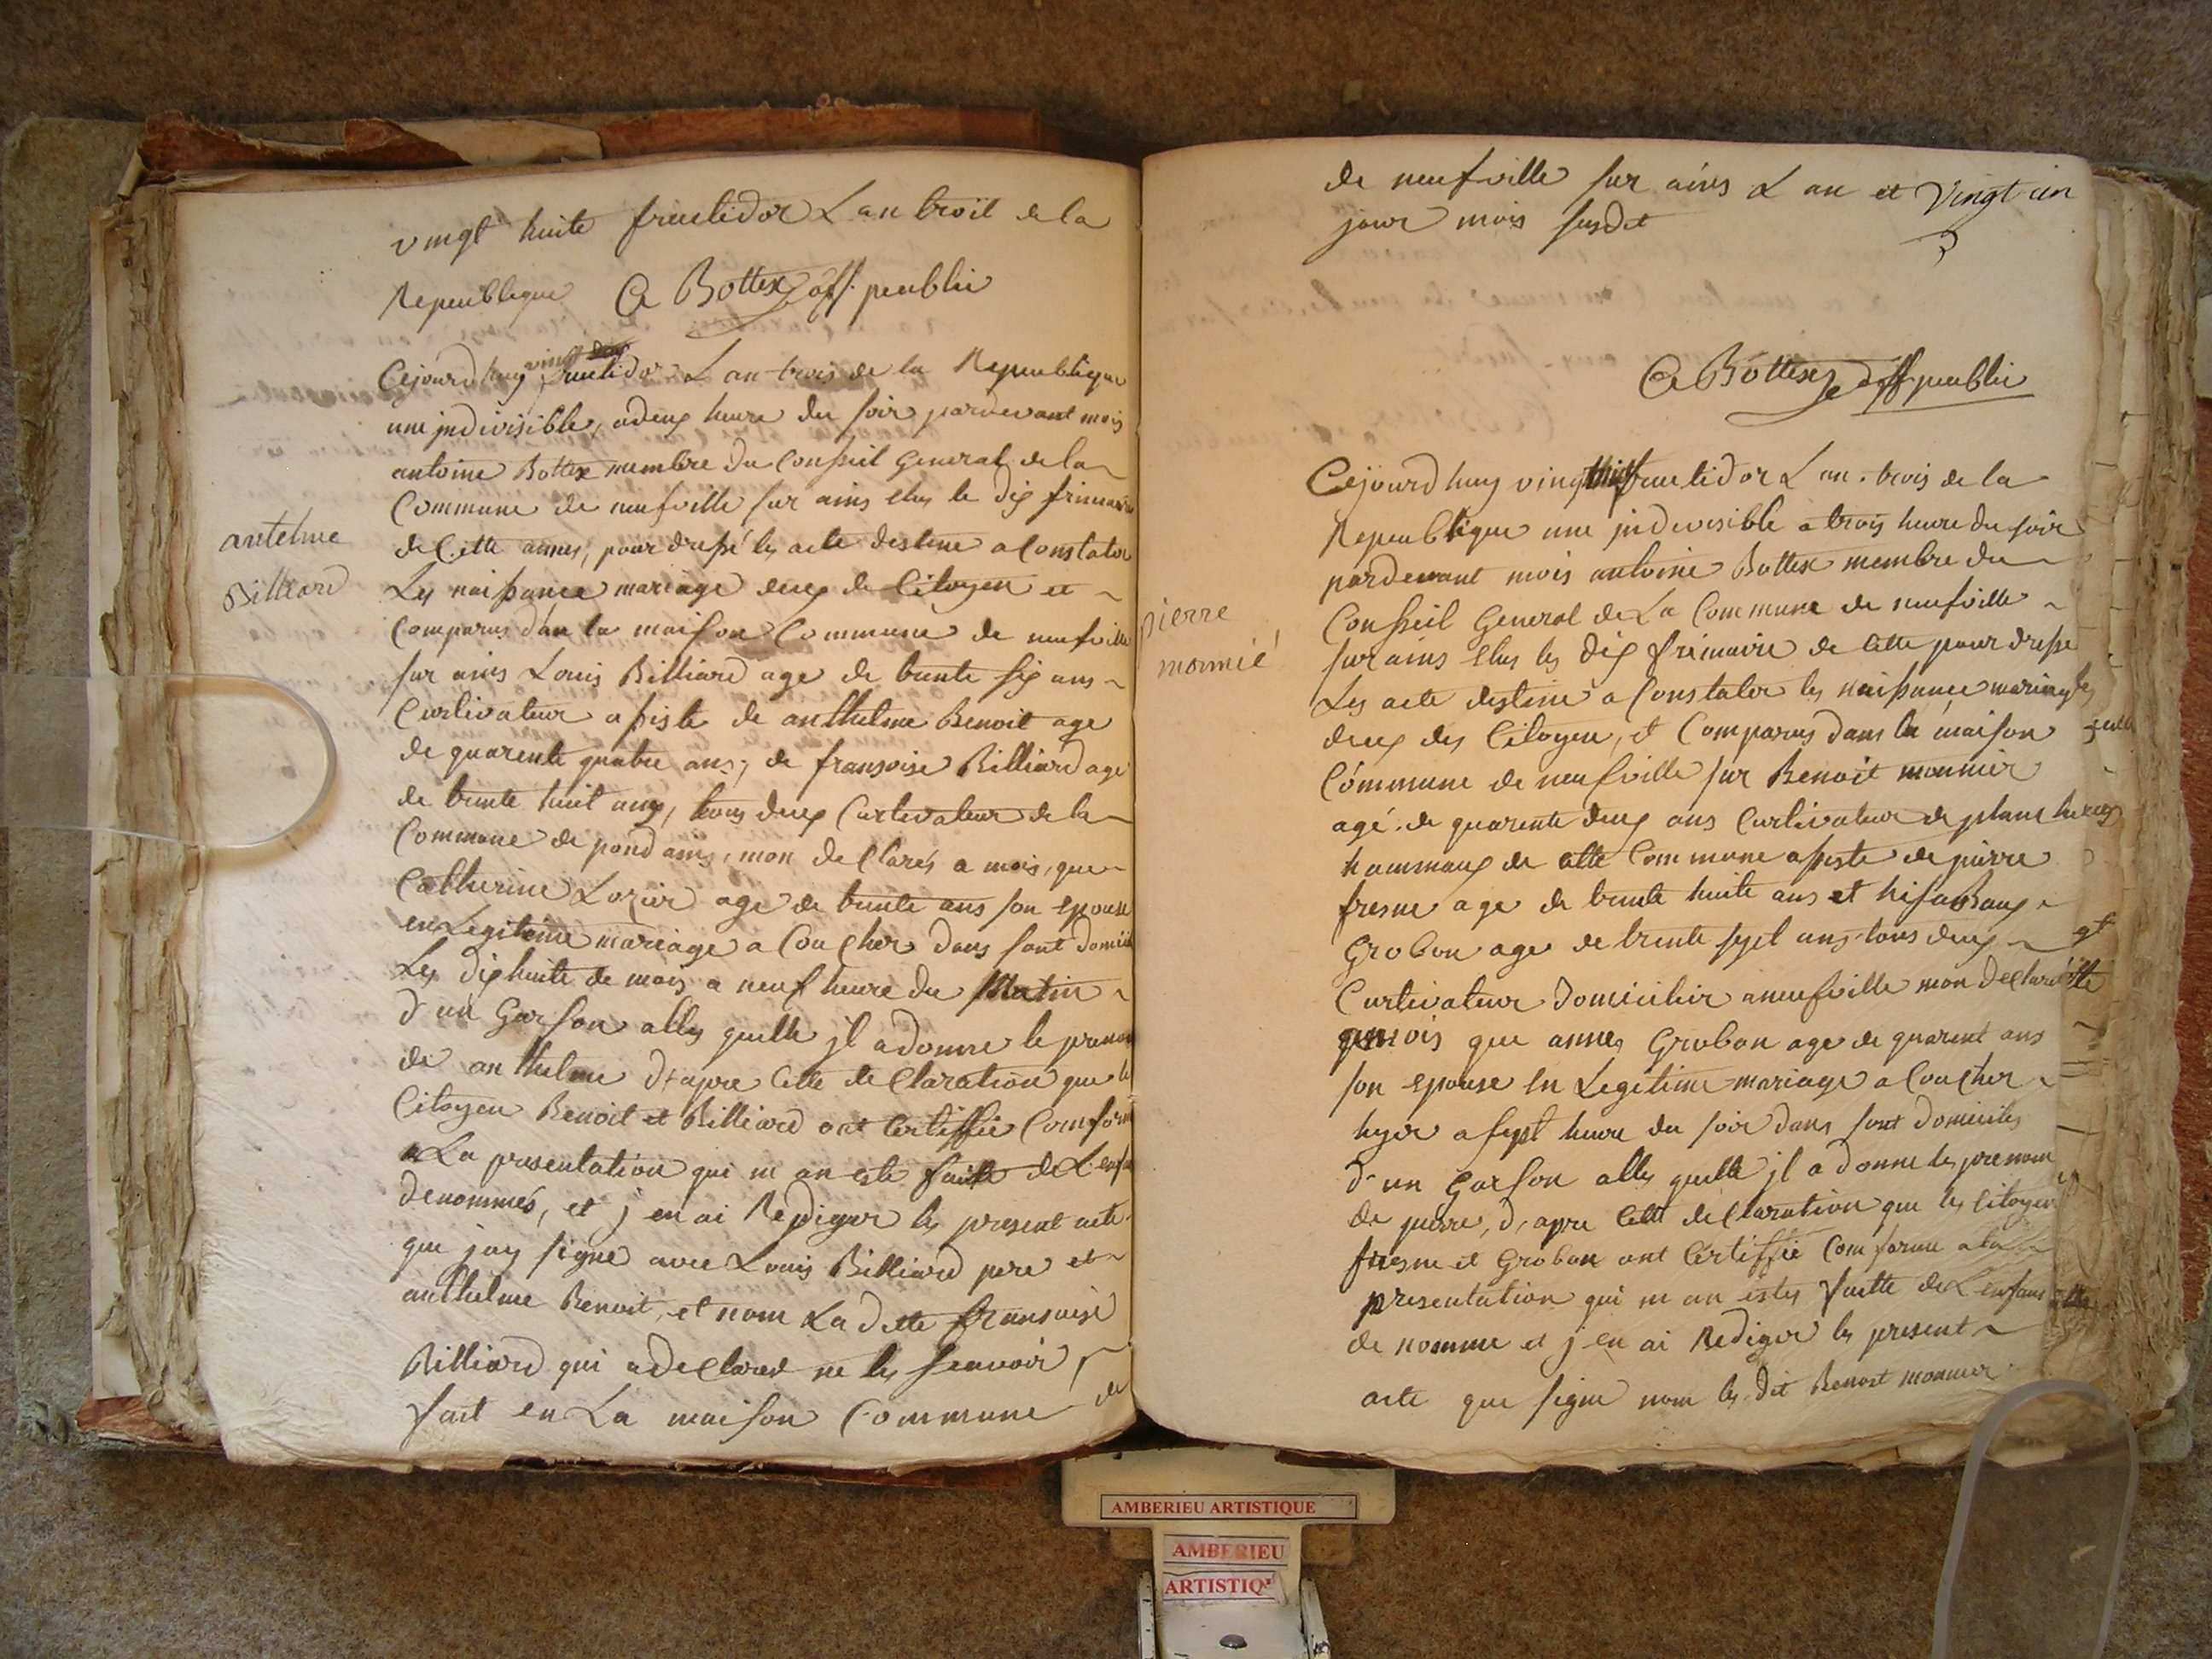 vingt huite fructidor L an troit de la
Republique A Bottex off. peublic
Cejourd huy vingt fructidor L an trois de la Republique
une jndivisible, a deux heure du soir pardevant mois
antoine Bottex membre du Conseil General de la
Commune de neufville sur ains elus le dix frimaire
de Cette annes, pour dressé les acte destine a Constater
Les naissance mariage deces de Citoyen et
Comparus dan la maison Commune de neufville
sur ains Louis Billiard age de trente six ans
Curtivateur assiste de anthelme Benoit age
de quarente quatre ans, de fransoise Billiard age
de trente huit ans, tous deux Curtivateur de la
Commune de pond ains, mon declarés a mois, que
Catherine Lozier age de trente ans son epouse
en Legitime mariage a Coucher dans sont domicile
Les dix huite de mois a neuf heure du Matin
d'un Garson alles quelle jl a donne le prenom
de anthelme d'apre Cette declaration que le
Citoyen Benoit et Billiard ont Certiffie Comforme
a La presentation qui m an este faitte de L'enfan
denommés, et j en ai Rediger les present acte
que jay signe avec Louis Billiard pere et
anthelme Benoit, et nom La dette fransoise
Billiard qui a declared ne les seauvoir
fait en La maison Commune de
antelme
Billiard
de neufville sur ains L an et vingt un
jour mois susdit
A Bottex off peublic
Cejourd huy vingt huit fructidor L an trois de la
Republique une jndivisible a trois heure du soir
pardevant mois antoine Bottex membre du
Conseil General de La Commune de neufville
sur ains elus les dix frimaire de Cette pour dresse
Les acte destine a Constater les naissance mariages
deces des Citoyen, et Comparus dans la maison
Commune de neufville sur Benoit monnier
agé de quarente deux ans Curtivateur de
hammaux de cette Commune assiste de pierre
fresne age de trente huite ans et
Grobon age de trente sept ans tous deux
Curtivateur domicilier a neufville mon declaré
mois que annes Grobon age de quarent ans
son epouse en Legitime mariage a Coucher
hyer a sept heure du soir dans sont domiciles
d'un Garson alles quelle jl a donne les prenom
de pierre, d'apre Cette declaration que les citoyen
fresne et Grobon ont Certiffie Comforme a la
presentation qui m an estes faitte de L enfans
denomme et j en ai Rediger les present
acte que signe nom les dit Benoit monnier
pierre
monnié
AMBERIEU ARTISTIQUE
AMBERIEU
ARTISTIQ